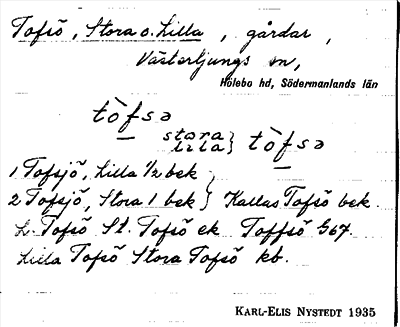 Tofsö, Stora o. Lilla, gårdar,
Västerljungs sn,
Hölebo hd, Södermanlands län
tòfsə
stora } tòfsə
lila
1 Tofsjö, Lilla 1/2 bek
2 Tofsjö, Stora 1 bek } Kallas Tofsö bek.
L. Tofsö St. Tofsö ek Toffsö G67.
Lilla Tofsö Stora Tofsö kb.
KARL-ELIS NYSTEDT 1935